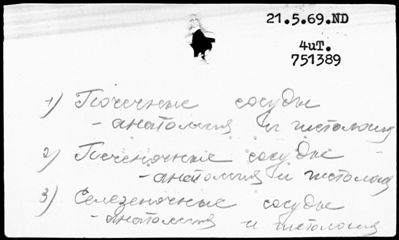 21.5.69.ND
4uT.
751389
1) Почечные сосуды
- анатомия и гистология
2) Печеночные сосуды
- анатомия и гистология
3) Селезеночные сосуды
- анатомия и гистология